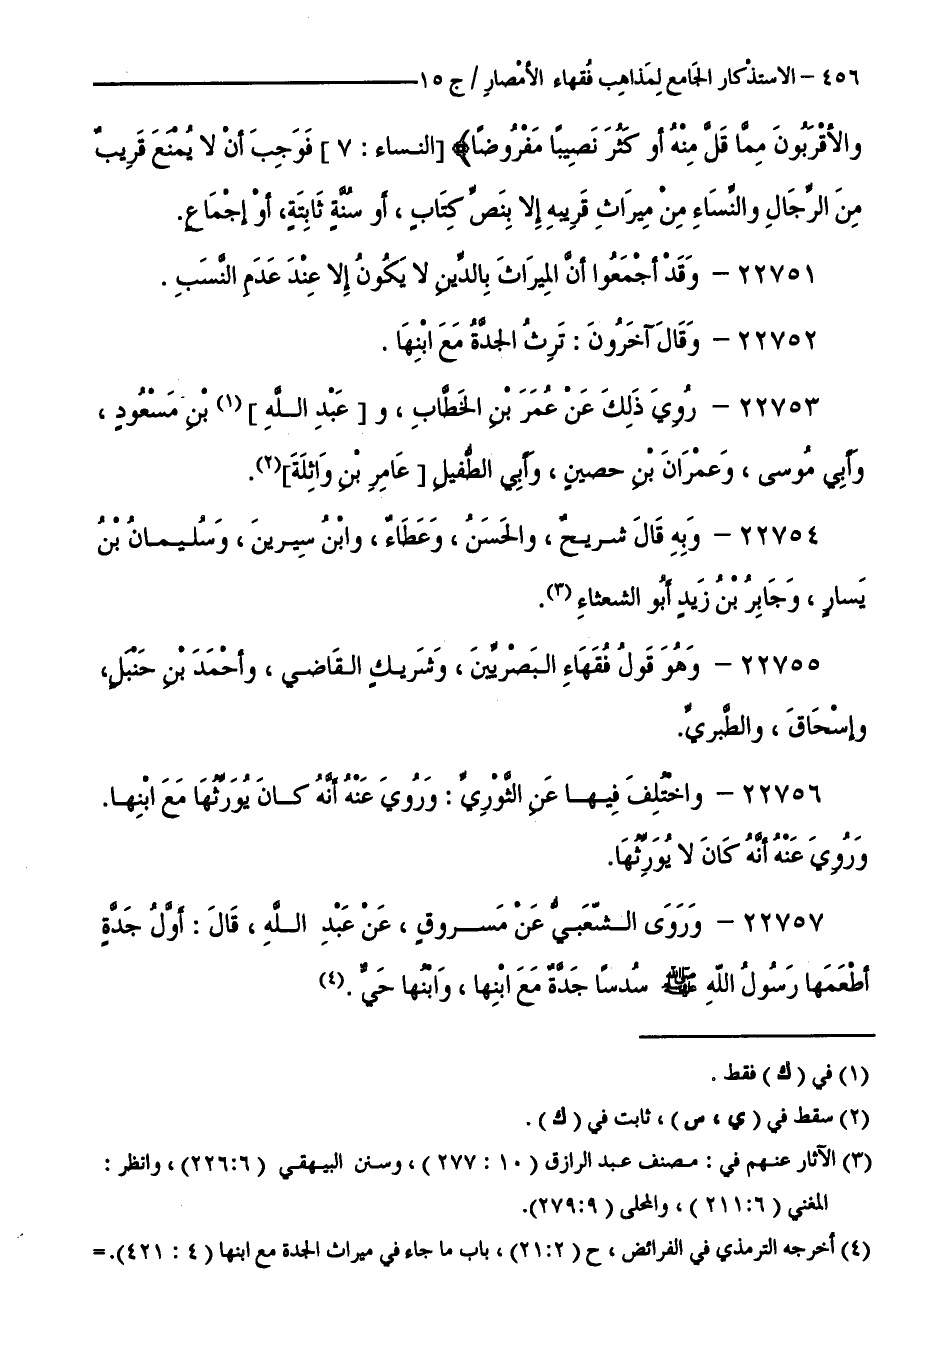 ٤٥٦ – الاستذْكار الجَامع لِمَذاهِب فُقهاء الأمْصارِ / ج ١٥
والأقْرَبُونَ مِمَّا قَلَّ مِنْهُ أو كَثُرَ نَصِيبًا مَفْرُوضًا﴾ [النساء : ٧ ] فَوَجِبَ أنْ لا يُمْنَعَ قَرِيبٌ
مِنَ الرِّجَالِ والنِّسَاءِ مِنْ مِيرَاثِ قَرِيبهِ إلا بِنَصِّ كِتَابٍ ، أو سُنَّةٍ ثَابِتَةٍ، أوْ إجْمَاعٍ.
٢٢٧٥١ – وَقَدْ أجْمَعُوا أنَّ المِيرَاثَ بِالدِّينِ لا يَكُونُ إلا عِنْدَ عَدَمِ النَّسَبِ .
٢٢٧٥٢ – وَقَالَ آخَرُونَ : تَرِثُ الجَدَّةُ مَعَ ابْنِهَا .
٢٢٧٥٣ – رُوِيَ ذَلِكَ عَنْ عُمَرَ بْنِ الخَطَّابِ ، و [ عَبْدِ اللَّهِ ] (١) بْنِ مَسْعُودٍ ،
وَأَبِي مُوسى ، وَعَمْرَانَ بْنِ حصينٍ ، وَأَبِي الطُّفيلِ [ عَامِرِ بْنِ وَاثِلَةَ](٢).
٢٢٧٥٤ – وَبِهِ قَالَ شريحٌ ، والحَسَنُ ، وَعَطَاءٌ ، وابْنُ سِيرينَ ، وَسُليمانُ بْنُ
يَسارٍ ، وَجَابِرُ بْنُ زَيدٍ أَبُو الشعثاءِ (٣).
٢٢٧٥٥ – وَهُوَ قَولُ فُقَهَاءِ البَصْرِيِّينَ ، وَشَرِيكٍ القَاضي ، وأحْمَدَ بْنِ حَنْبَلٍ،
وإسْحَاقَ ، والطَّبريِّ.
٢٢٧٥٦ – واخْتُلِفَ فِيها عَنِ الثَّوْرِيِّ : وَرُوِيَ عَنْهُ أنَّهُ كانَ يُوَرِّثُهَا مَعَ ابْنِها.
وَرُوِيَ عَنْهُ أنَّهُ كَانَ لا يُوَرِّثُهَا.
٢٢٧٥٧ – وَرَوَى الشّعَبيُّ عَنْ مَسروقٍ ، عَنْ عَبْدِ اللَّهِ ، قَالَ : أوَّلُ جَدَّةٍ
أطْعَمَها رَسُولُ اللّهِ ﷺ سُدسًا جَدَّةٌ مَعَ ابْنِها ، وَابْنُها حَيٌّ .(٤)
(١) في ( ك ) فقط .
(٢) سقط في ( ي ، س ) ، ثابت في ( ك ) .
(٣) الآثار عنهم في : مصنف عبد الرازق ( ١٠ : ٢٧٧ ) ، وسنن البيهقي (٢٢٦:٦) ، وانظر :
المغني ( ٢١١:٦ ) ، والمحلى ( ٢٧٩:٩).
(٤) أخرجه الترمذي في الفرائض ، ح (٢١:٢) ، باب ما جاء في ميراث الجدة مع ابنها ( ٤ : ٤٢١). =